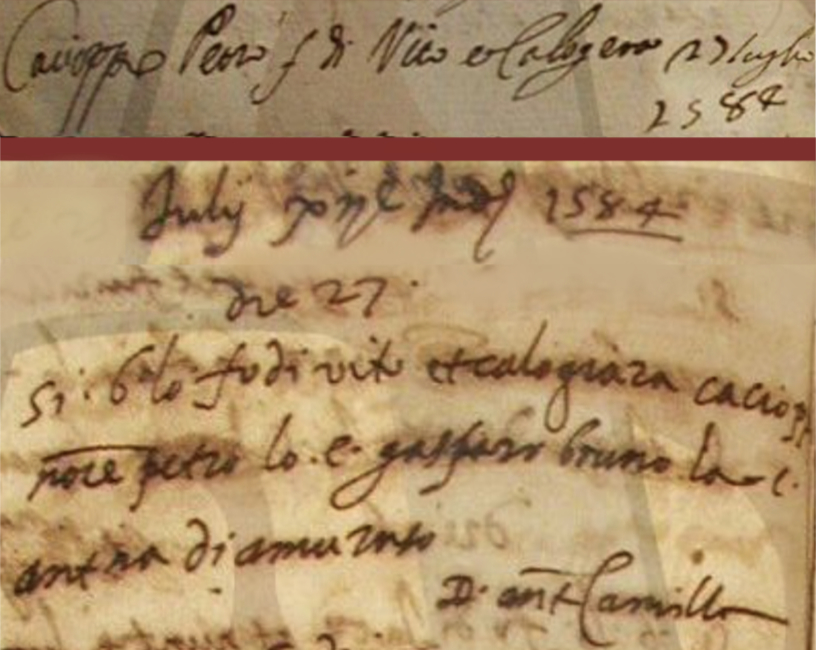 Cacioppo Petro f di Vito e Calogera 27 luglio
1584
Julij xije Ind 1584
die 27
Si. b. lo fo di vito et calogiara caciop
noe petro lo. c. gasparo bruno la c.
antna di amuruso
D. ant Camillo